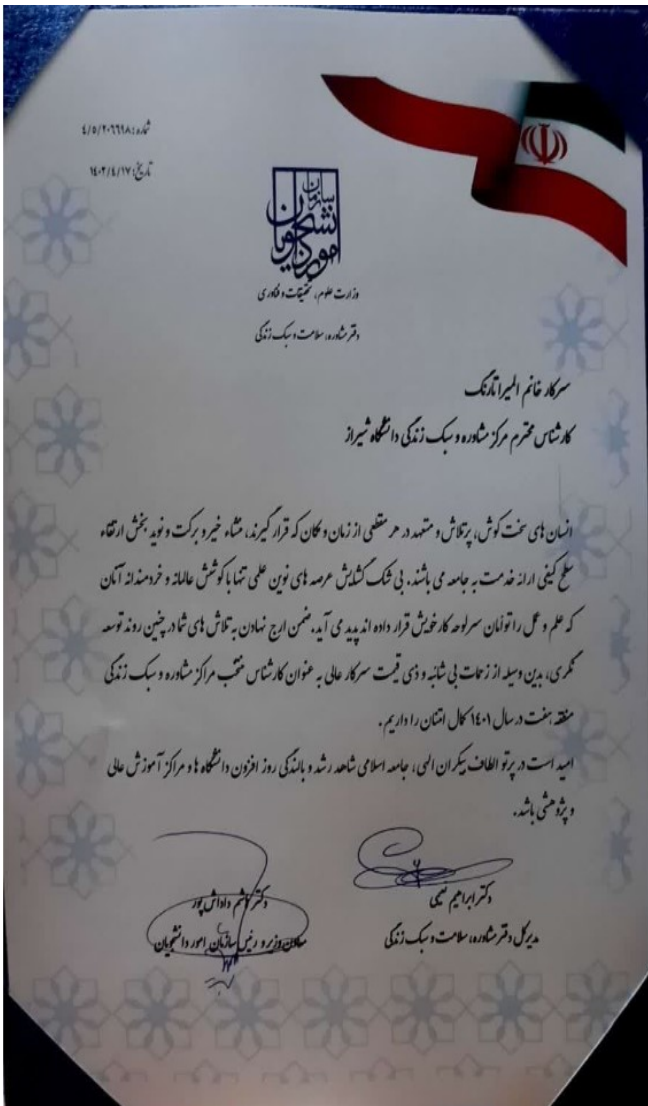 شماره: ٤/٥/٢٠٦٦٩٨
تاریخ: ١٤٠٢/٤/١٧
سازمان
امور دانشجویان
وزارت علوم، تحقیقات و فناوری
دفتر مشاوره، سلامت و سبک زندگی
سرکار خانم المیرا تارنگ
کارشناس محترم مرکز مشاوره و سبک زندگی دانشگاه شیراز
انسان های سخت کوش، پرتلاش و متعهد در هر مقطعی از زمان و مکان که قرار گیرند، منشاء خیر و برکت و نوید بخش ارتقاء
سطح کیفی ارائه خدمت به جامعه می باشند. بی شک گشایش عرصه های نوین علمی تنها با کوشش عالمانه و خردمندانه آنان
که علم و عمل را توامان سرلوحه کار خویش قرار داده اند پدید می آید. ضمن ارج نهادن به تلاش های شما در چنین روند توسعه
فکری، بدین وسیله از زحمات بی شائبه و ذی قیمت سرکار عالی به عنوان کارشناس منتخب مراکز مشاوره و سبک زندگی
منطقه هفت در سال ١٤٠١ کمال امتنان را داریم.
امید است در پرتو الطاف بیکران الهی، جامعه اسلامی شاهد رشد و بالندگی روز افزون دانشگاه ها و مراکز آموزش عالی
و پژوهشی باشد.
دکتر ابراهیم نعیمی
مدیرکل دفتر مشاوره، سلامت و سبک زندگی
دکتر هاشم داداش پور
معاون وزیر و رئیس سازمان امور دانشجویان